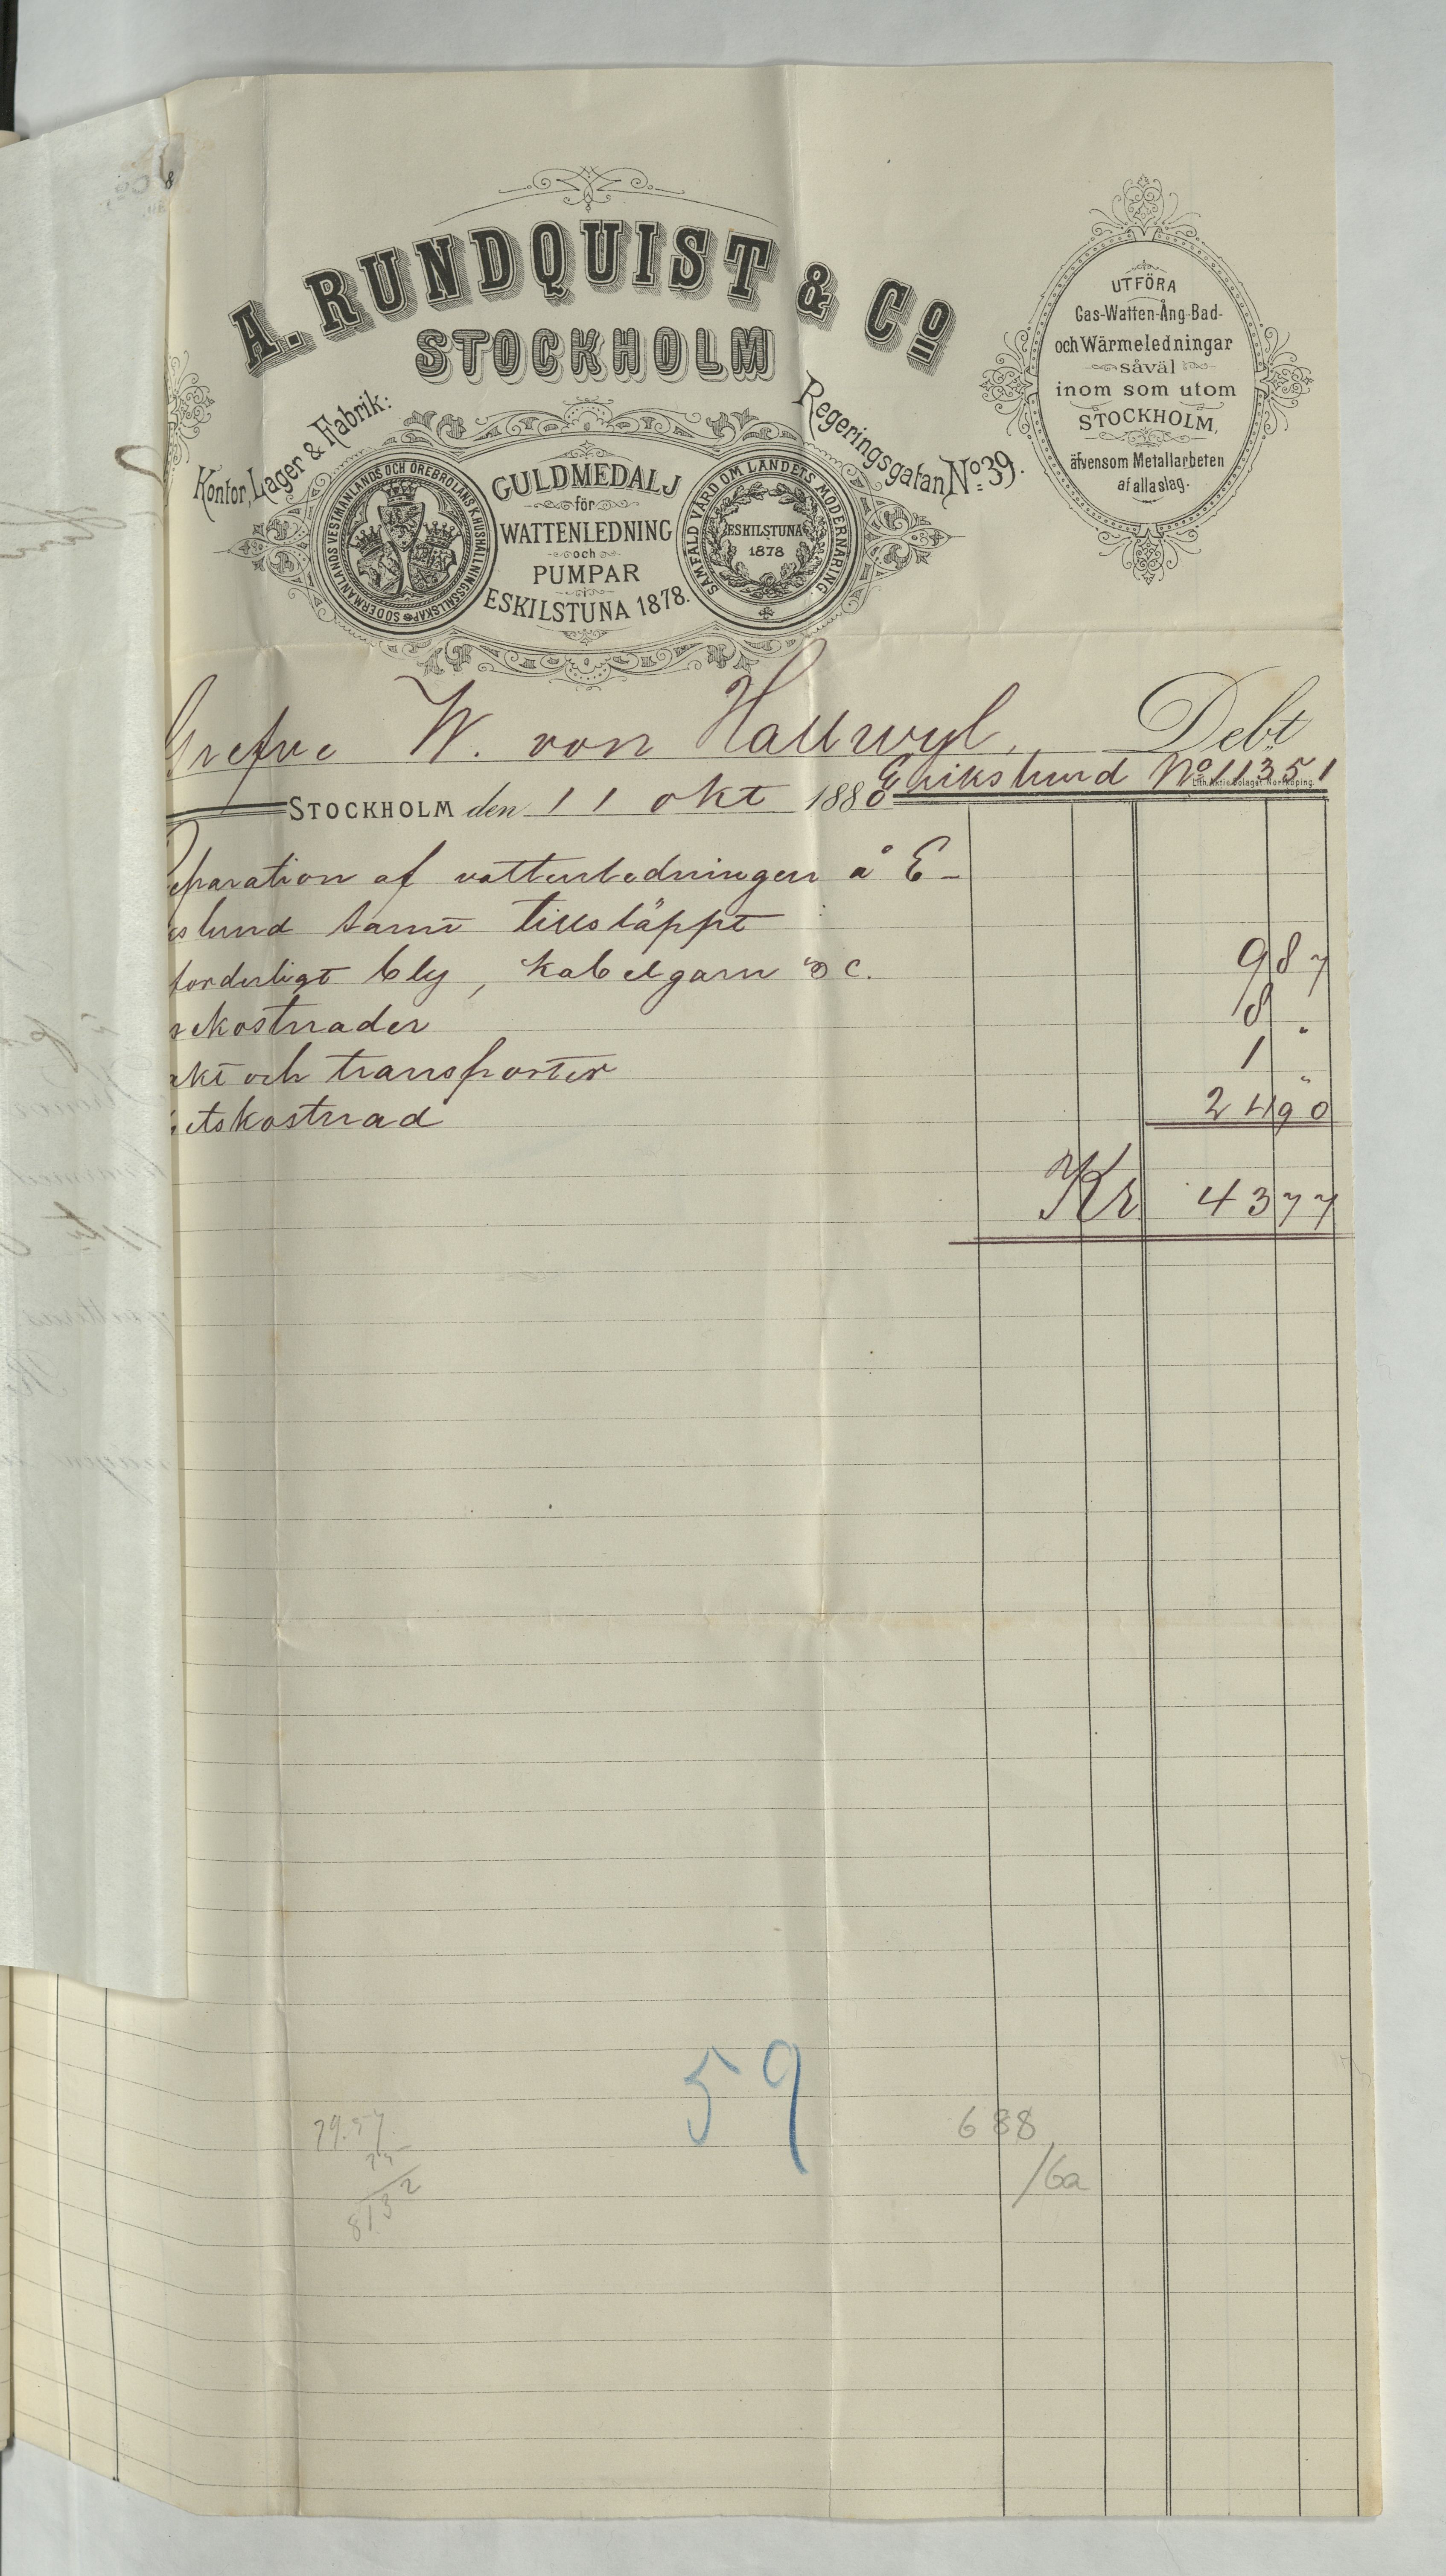 A. RUNDQUIST & Co
STOCKHOLM
Kontor, Lager & Fabrik:
Regeringsgatan No 39.
SÖDERMANLANDS VESTMANLANDS OCH ÖREBRO LÄNS K. HUSHÅLLNINGSSÄLLSKAP
GULDMEDALJ
för
WATTENLEDNING
och
PUMPAR
ESKILSTUNA 1878.
SAMFÄLD VÅRD OM LANDETS MODERNÄRING
ESKILSTUNA
1878
UTFÖRA
Gas-Watten-Ång-Bad-
och Wärmeledningar
såväl
inom som utom
STOCKHOLM,
äfvensom Metallarbeten
af alla slag.
Grefve W. von Hallwyl. Debt
Erikslund No 11351
Lith. Aktie Bolaget Norrköping.
STOCKHOLM den 11 okt 1880
eparation af vattenledningen å E-
kslund samt tillsläppt
forderligt bly, kabelgarn &c. 9 87
sekostnader 8 "
akt och transporter 1 "
etskostnad 24 90
Kr 43 77
59
688
/6a
29.57
8132